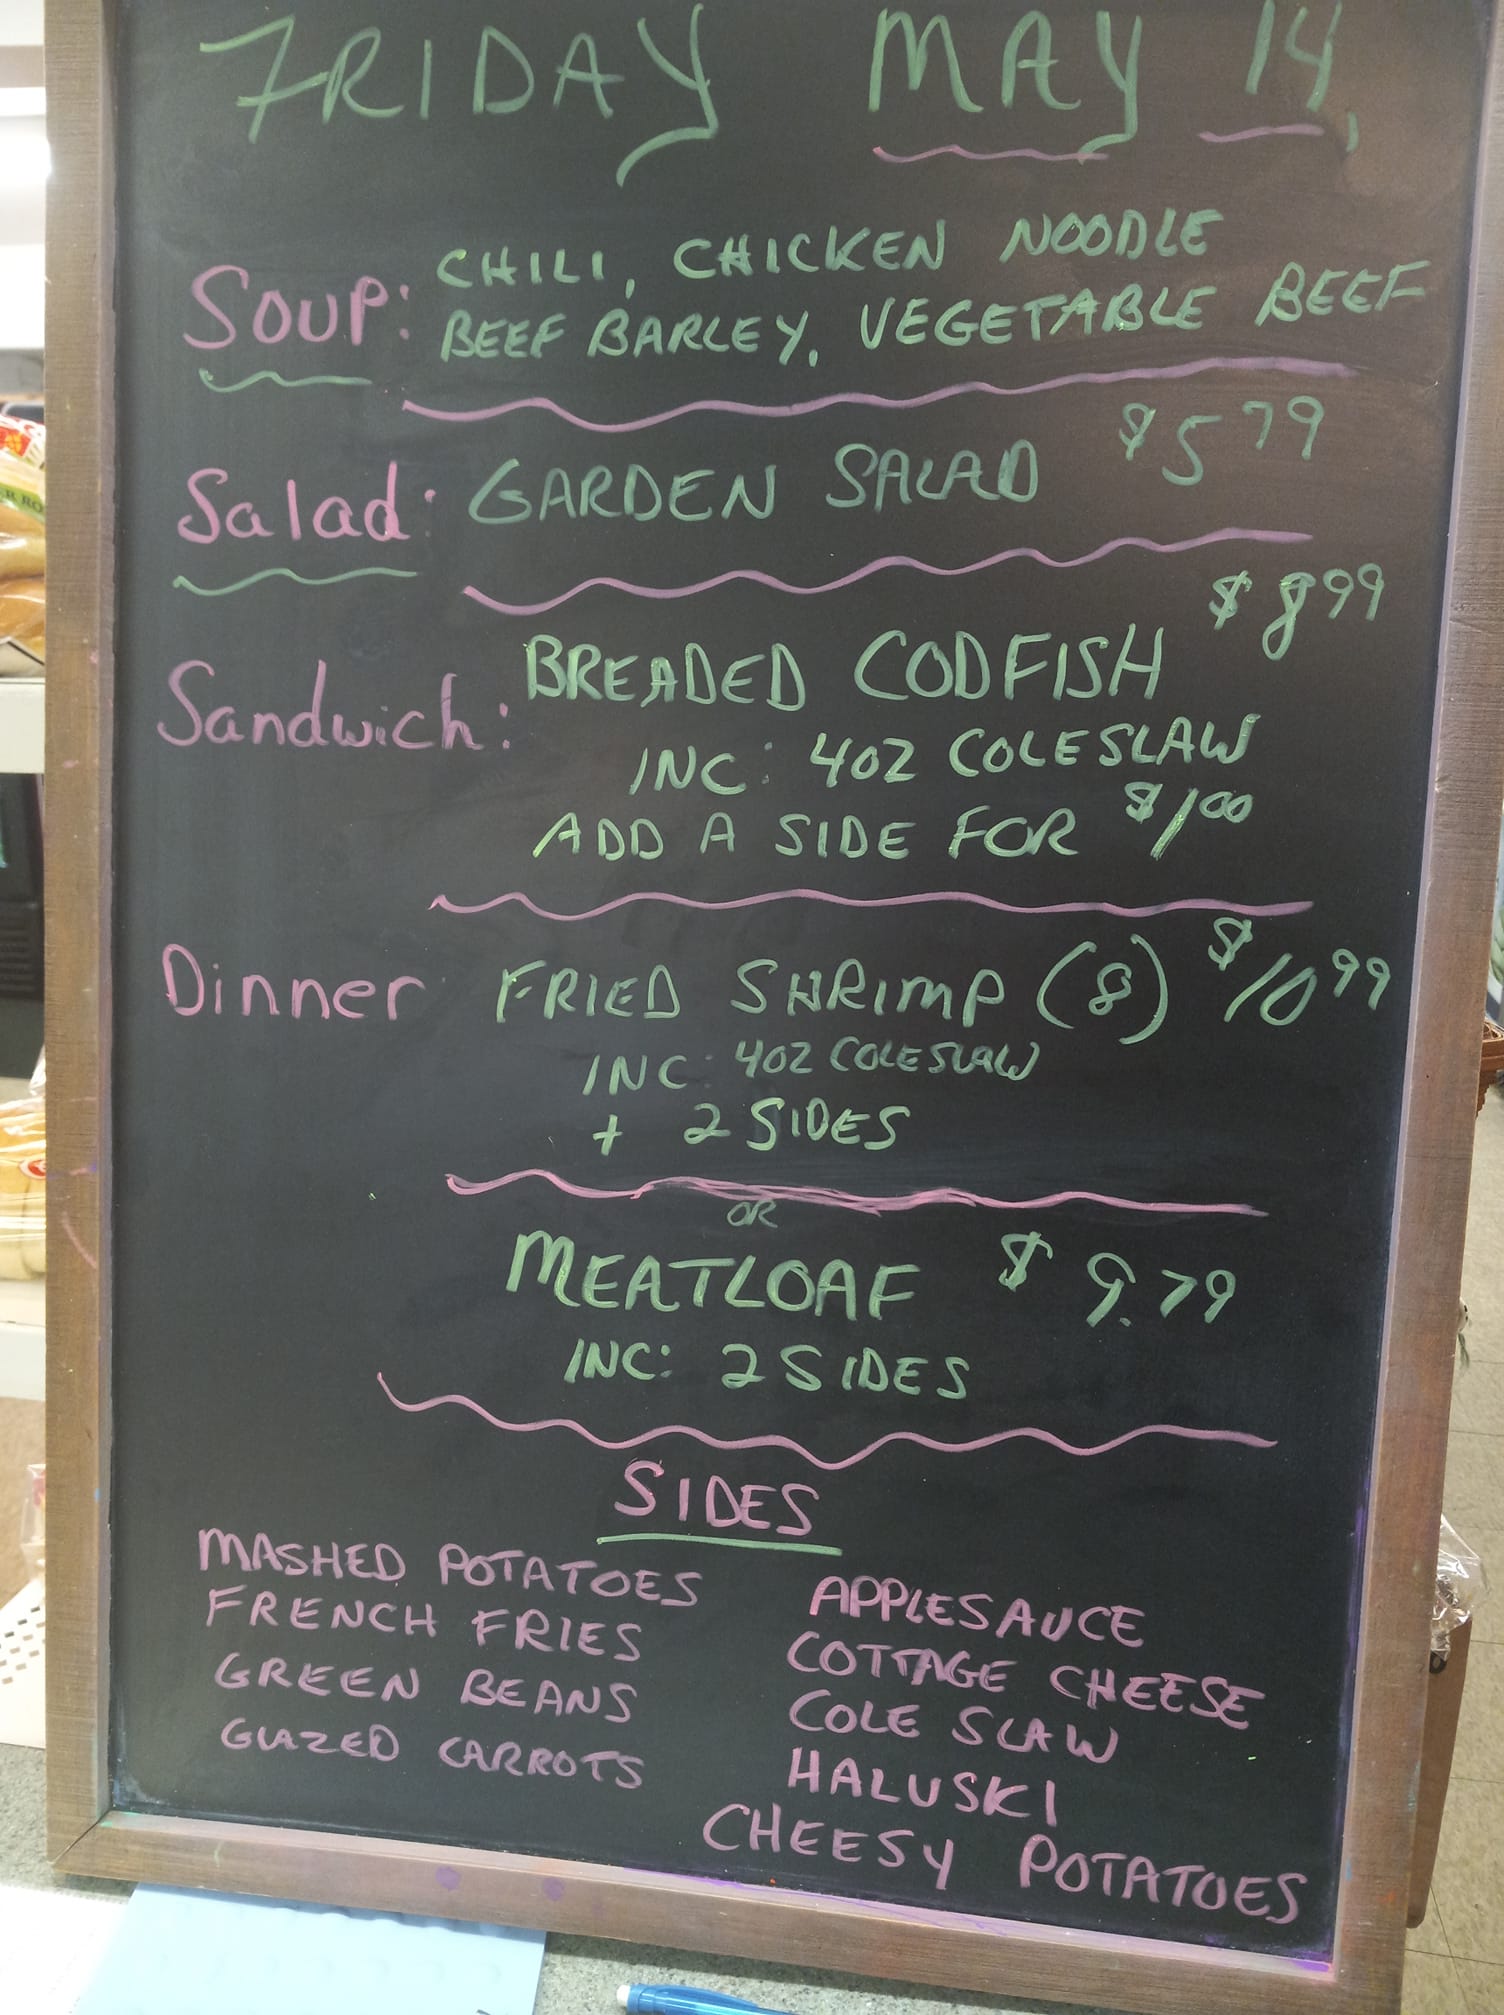 FRIDAY MAY 14,
Soup: CHILI, CHICKEN NOODLE
BEEF BARLEY, VEGETABLE BEEF
Salad: GARDEN SALAD $5 79
Sandwich: BREADED CODFISH $8 99
INC: 4OZ COLESLAW
ADD A SIDE FOR $1 00
Dinner FRIED SHRIMP (8) $10 99
INC: 4OZ COLESLAW
+ 2 SIDES
OR
MEATLOAF $9.79
INC: 2 SIDES
SIDES
MASHED POTATOES
FRENCH FRIES
GREEN BEANS
GLAZED CARROTS
APPLESAUCE
COTTAGE CHEESE
COLE SLAW
HALUSKI
CHEESY POTATOES